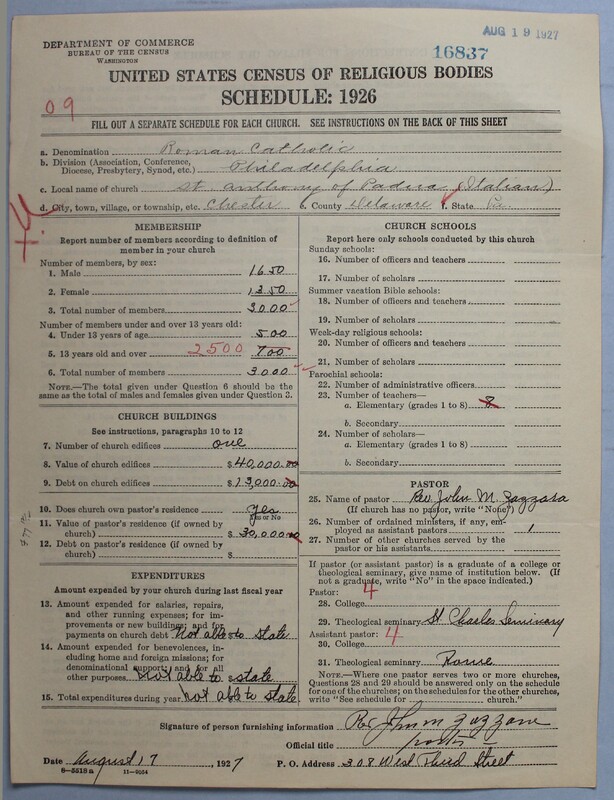 AUG 19 1927
16837
DEPARTMENT OF COMMERCE
BUREAU OF THE CENSUS
WASHINGTON
UNITED STATES CENSUS OF RELIGIOUS BODIES
SCHEDULE: 1926
09
FILL OUT A SEPARATE SCHEDULE FOR EACH CHURCH. SEE INSTRUCTIONS ON THE BACK OF THIS SHEET
a. Denomination Roman Catholic
b. Division (Association, Conference, Diocese, Presbytery, Synod, etc.) Philadelphia
c. Local name of church St. Anthony of Padua (Italian)
d. City, town, village, or township, etc. Chester e. County Delaware f. State Pa.
MEMBERSHIP
Report number of members according to definition of
member in your church
Number of members, by sex:
1. Male 1650
2. Female 1350
3. Total number of members 3000
Number of members under and over 13 years old:
4. Under 13 years of age 500
5. 13 years old and over 2500 700
6. Total number of members 3000
NOTE.—The total given under Question 6 should be
same as the total of males and females given under Question 3.
CHURCH BUILDINGS
See instructions, paragraphs 10 to 12
7. Number of church edifices one
8. Value of church edifices $40,000.00
9. Debt on church edifices $13,000.00
10. Does church own pastor's residence yes
Yes or No
11. Value of pastor's residence (if owned by
church) $30,000.00
12. Debt on pastor's residence (if owned by
church) $
EXPENDITURES
Amount expended by your church during last fiscal year
13. Amount expended for salaries, repairs,
and other running expenses; for im-
provements or new building; and for
payments on church debt Not able to state
14. Amount expended for benevolences, in-
cluding home and foreign missions; for
denominational support; and for all
other purposes Not able to state
15. Total expenditures during year not able to state
CHURCH SCHOOLS
Report here only schools conducted by this church
Sunday schools:
16. Number of officers and teachers
17. Number of scholars
Summer vacation Bible schools:
18. Number of officers and teachers
19. Number of scholars
Week-day religious schools:
20. Number of officers and teachers
21. Number of scholars
Parochial schools:
22. Number of administrative officers
23. Number of teachers—
a. Elementary (grades 1 to 8) 8
b. Secondary
24. Number of scholars—
a. Elementary (grades 1 to 8)
b. Secondary
PASTOR
25. Name of pastor Rev. John M. Zazzara
(If church has no pastor, write "None")
26. Number of ordained ministers, if any, em-
ployed as assistant pastors 1
27. Number of other churches served by the
pastor or his assistants
If pastor (or assistant pastor) is a graduate of a college or
theological seminary, give name of institution below. (If
not a graduate, write "No" in the space indicated.)
Pastor: 4
28. College
29. Theological seminary St Charles Seminary
Assistant pastor: 4
30. College
31. Theological seminary Rome
NOTE.—Where one pastor serves two or more churches,
Questions 28 and 29 should be answered only on the schedule
for one of the churches; on the schedules for the other churches,
write "See schedule for church."
Signature of person furnishing information Rev John M Zazzara
Official title
Date August 17, 1927 P. O. Address 308 West Third Street
8—5518 a 11—9054